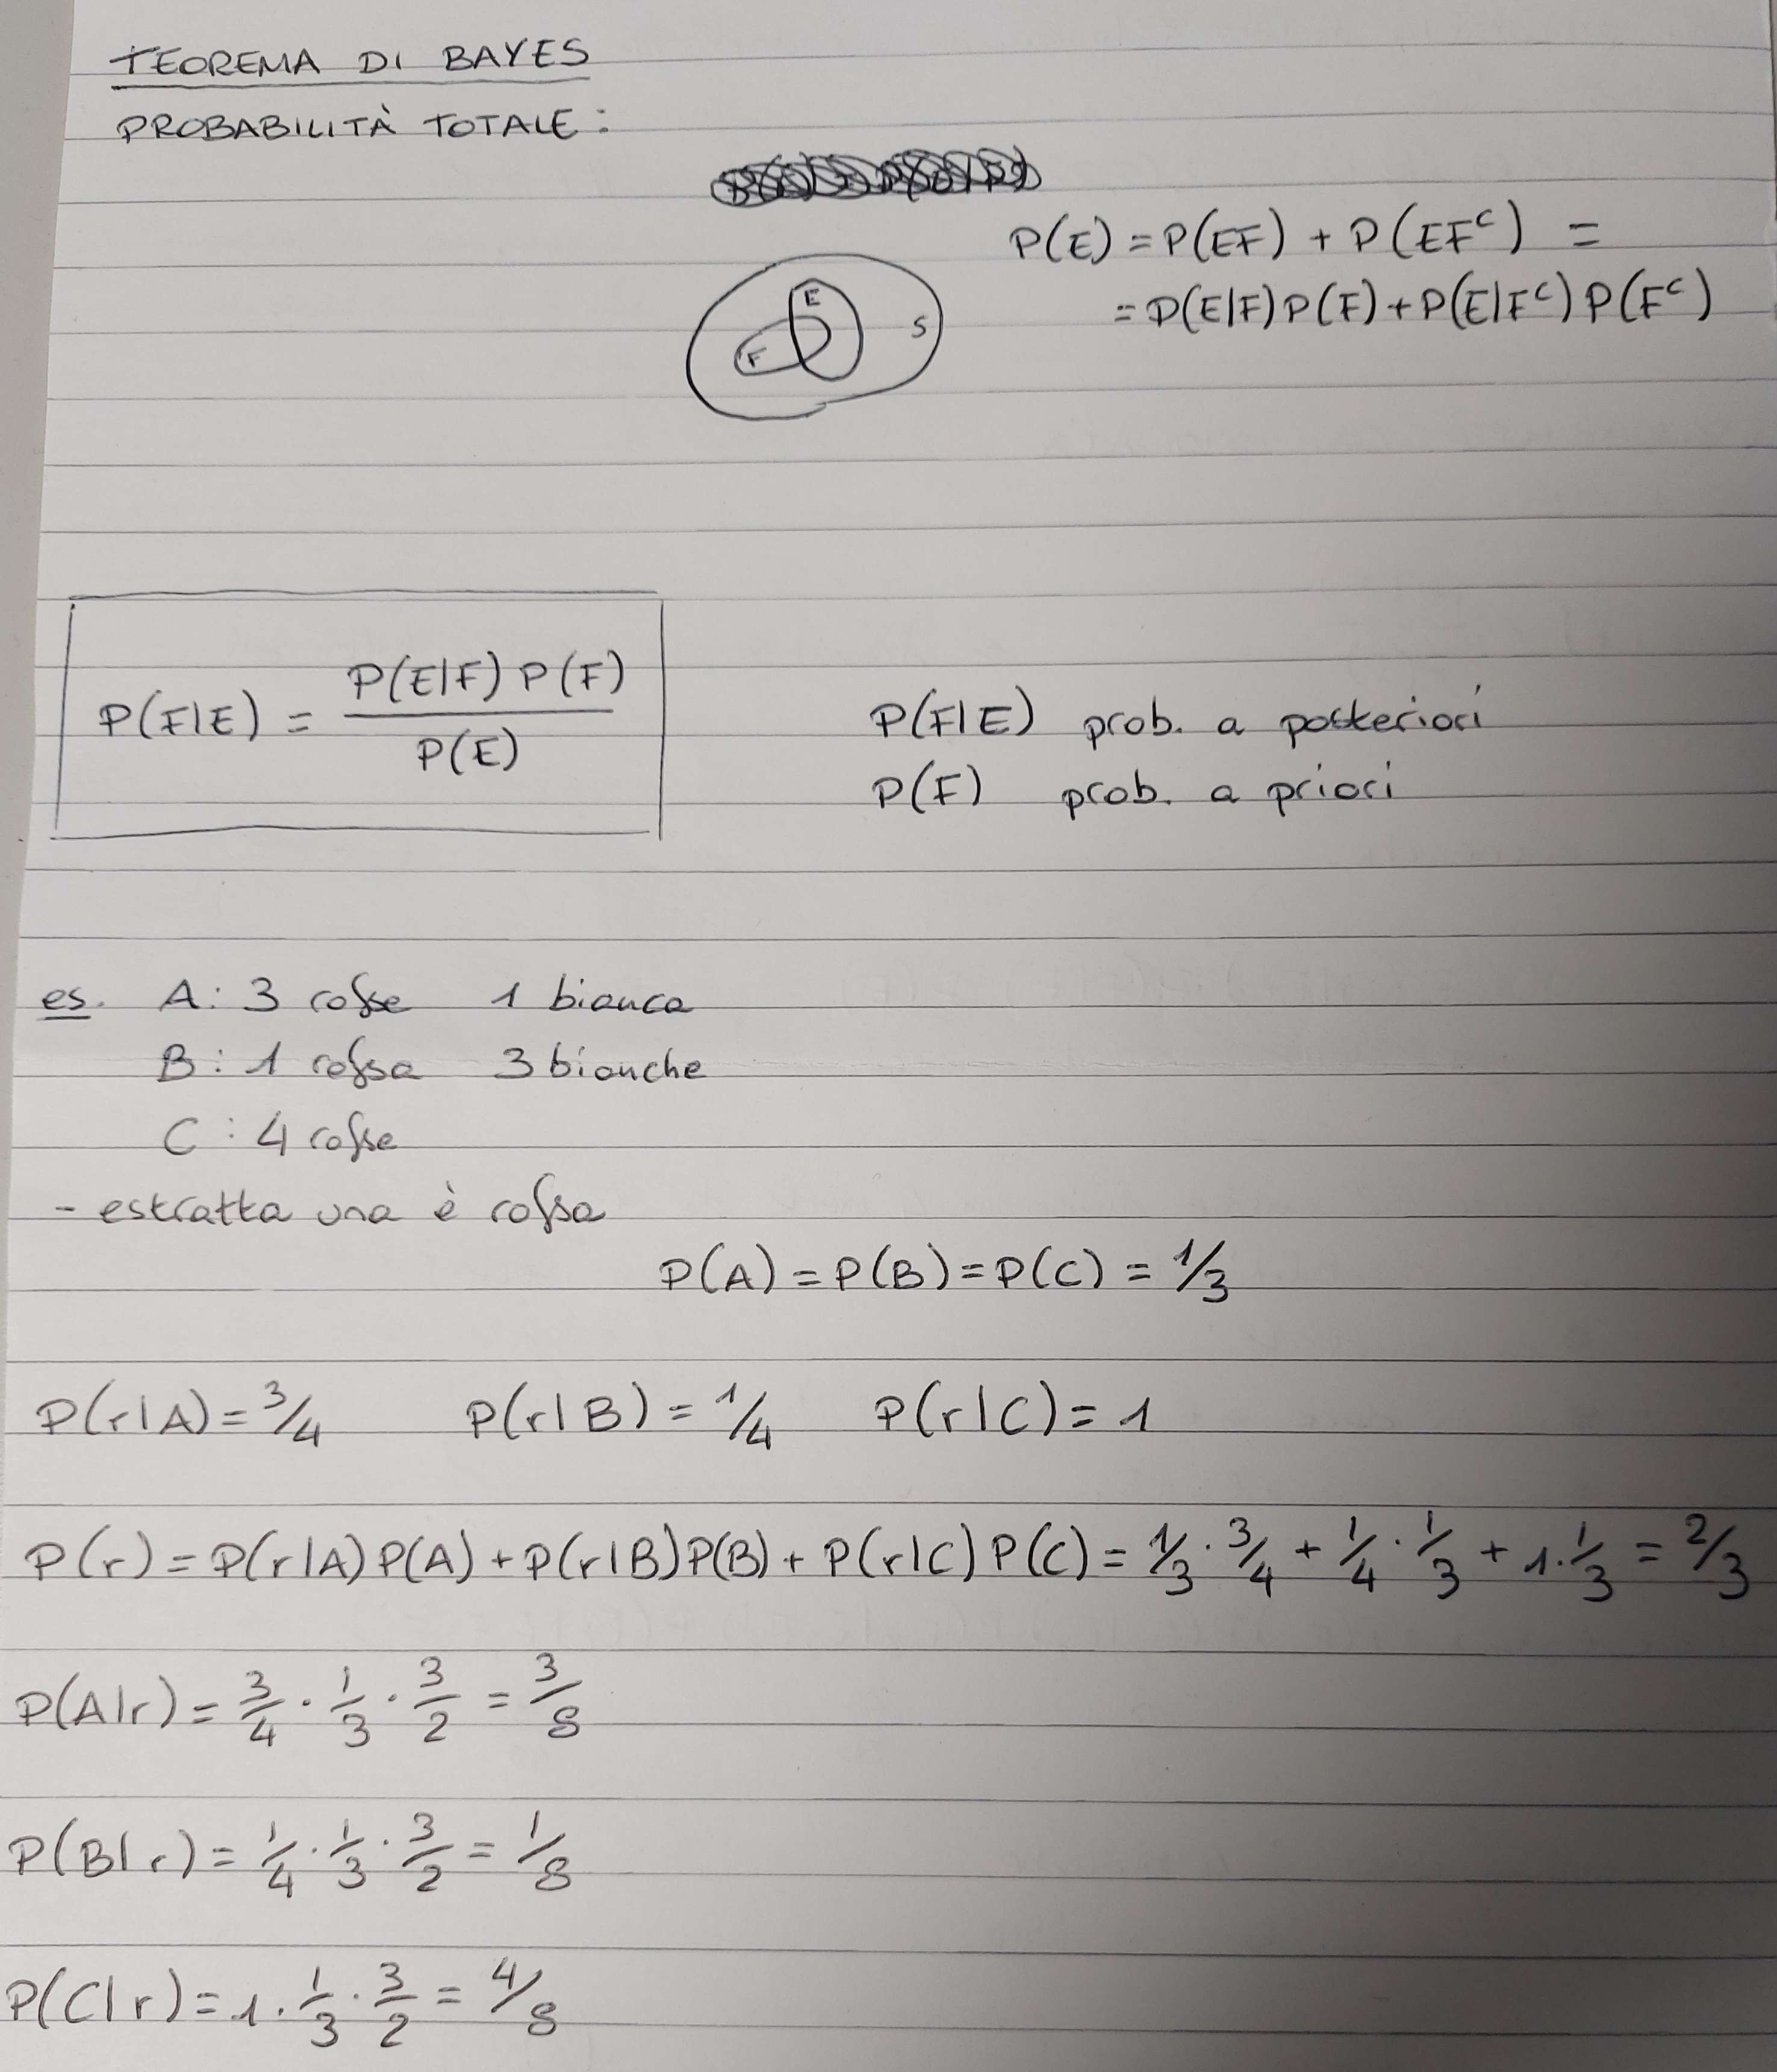 TEOREMA DI BAYES
PROBABILITÀ TOTALE:
P(E) = P(EF) + P(EFᶜ) =
= P(E|F) P(F) + P(E|Fᶜ) P(Fᶜ)
E
F
S
P(F|E) = P(E|F) P(F) / P(E)
P(F|E) prob. a posteriori
P(F) prob. a priori
es. A: 3 rosse 1 bianca
B: 1 rossa 3 bianche
C: 4 rosse
- estratta una è rossa
P(A) = P(B) = P(C) = 1/3
P(r|A) = 3/4 P(r|B) = 1/4 P(r|C) = 1
P(r) = P(r|A) P(A) + P(r|B) P(B) + P(r|C) P(C) = 1/3 · 3/4 + 1/4 · 1/3 + 1 · 1/3 = 2/3
P(A|r) = 3/4 · 1/3 · 3/2 = 3/8
P(B|r) = 1/4 · 1/3 · 3/2 = 1/8
P(C|r) = 1 · 1/3 · 3/2 = 4/8